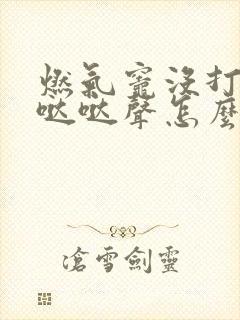 燃氣竈沒打
噠噠聲怎麼
滄雪劍靈